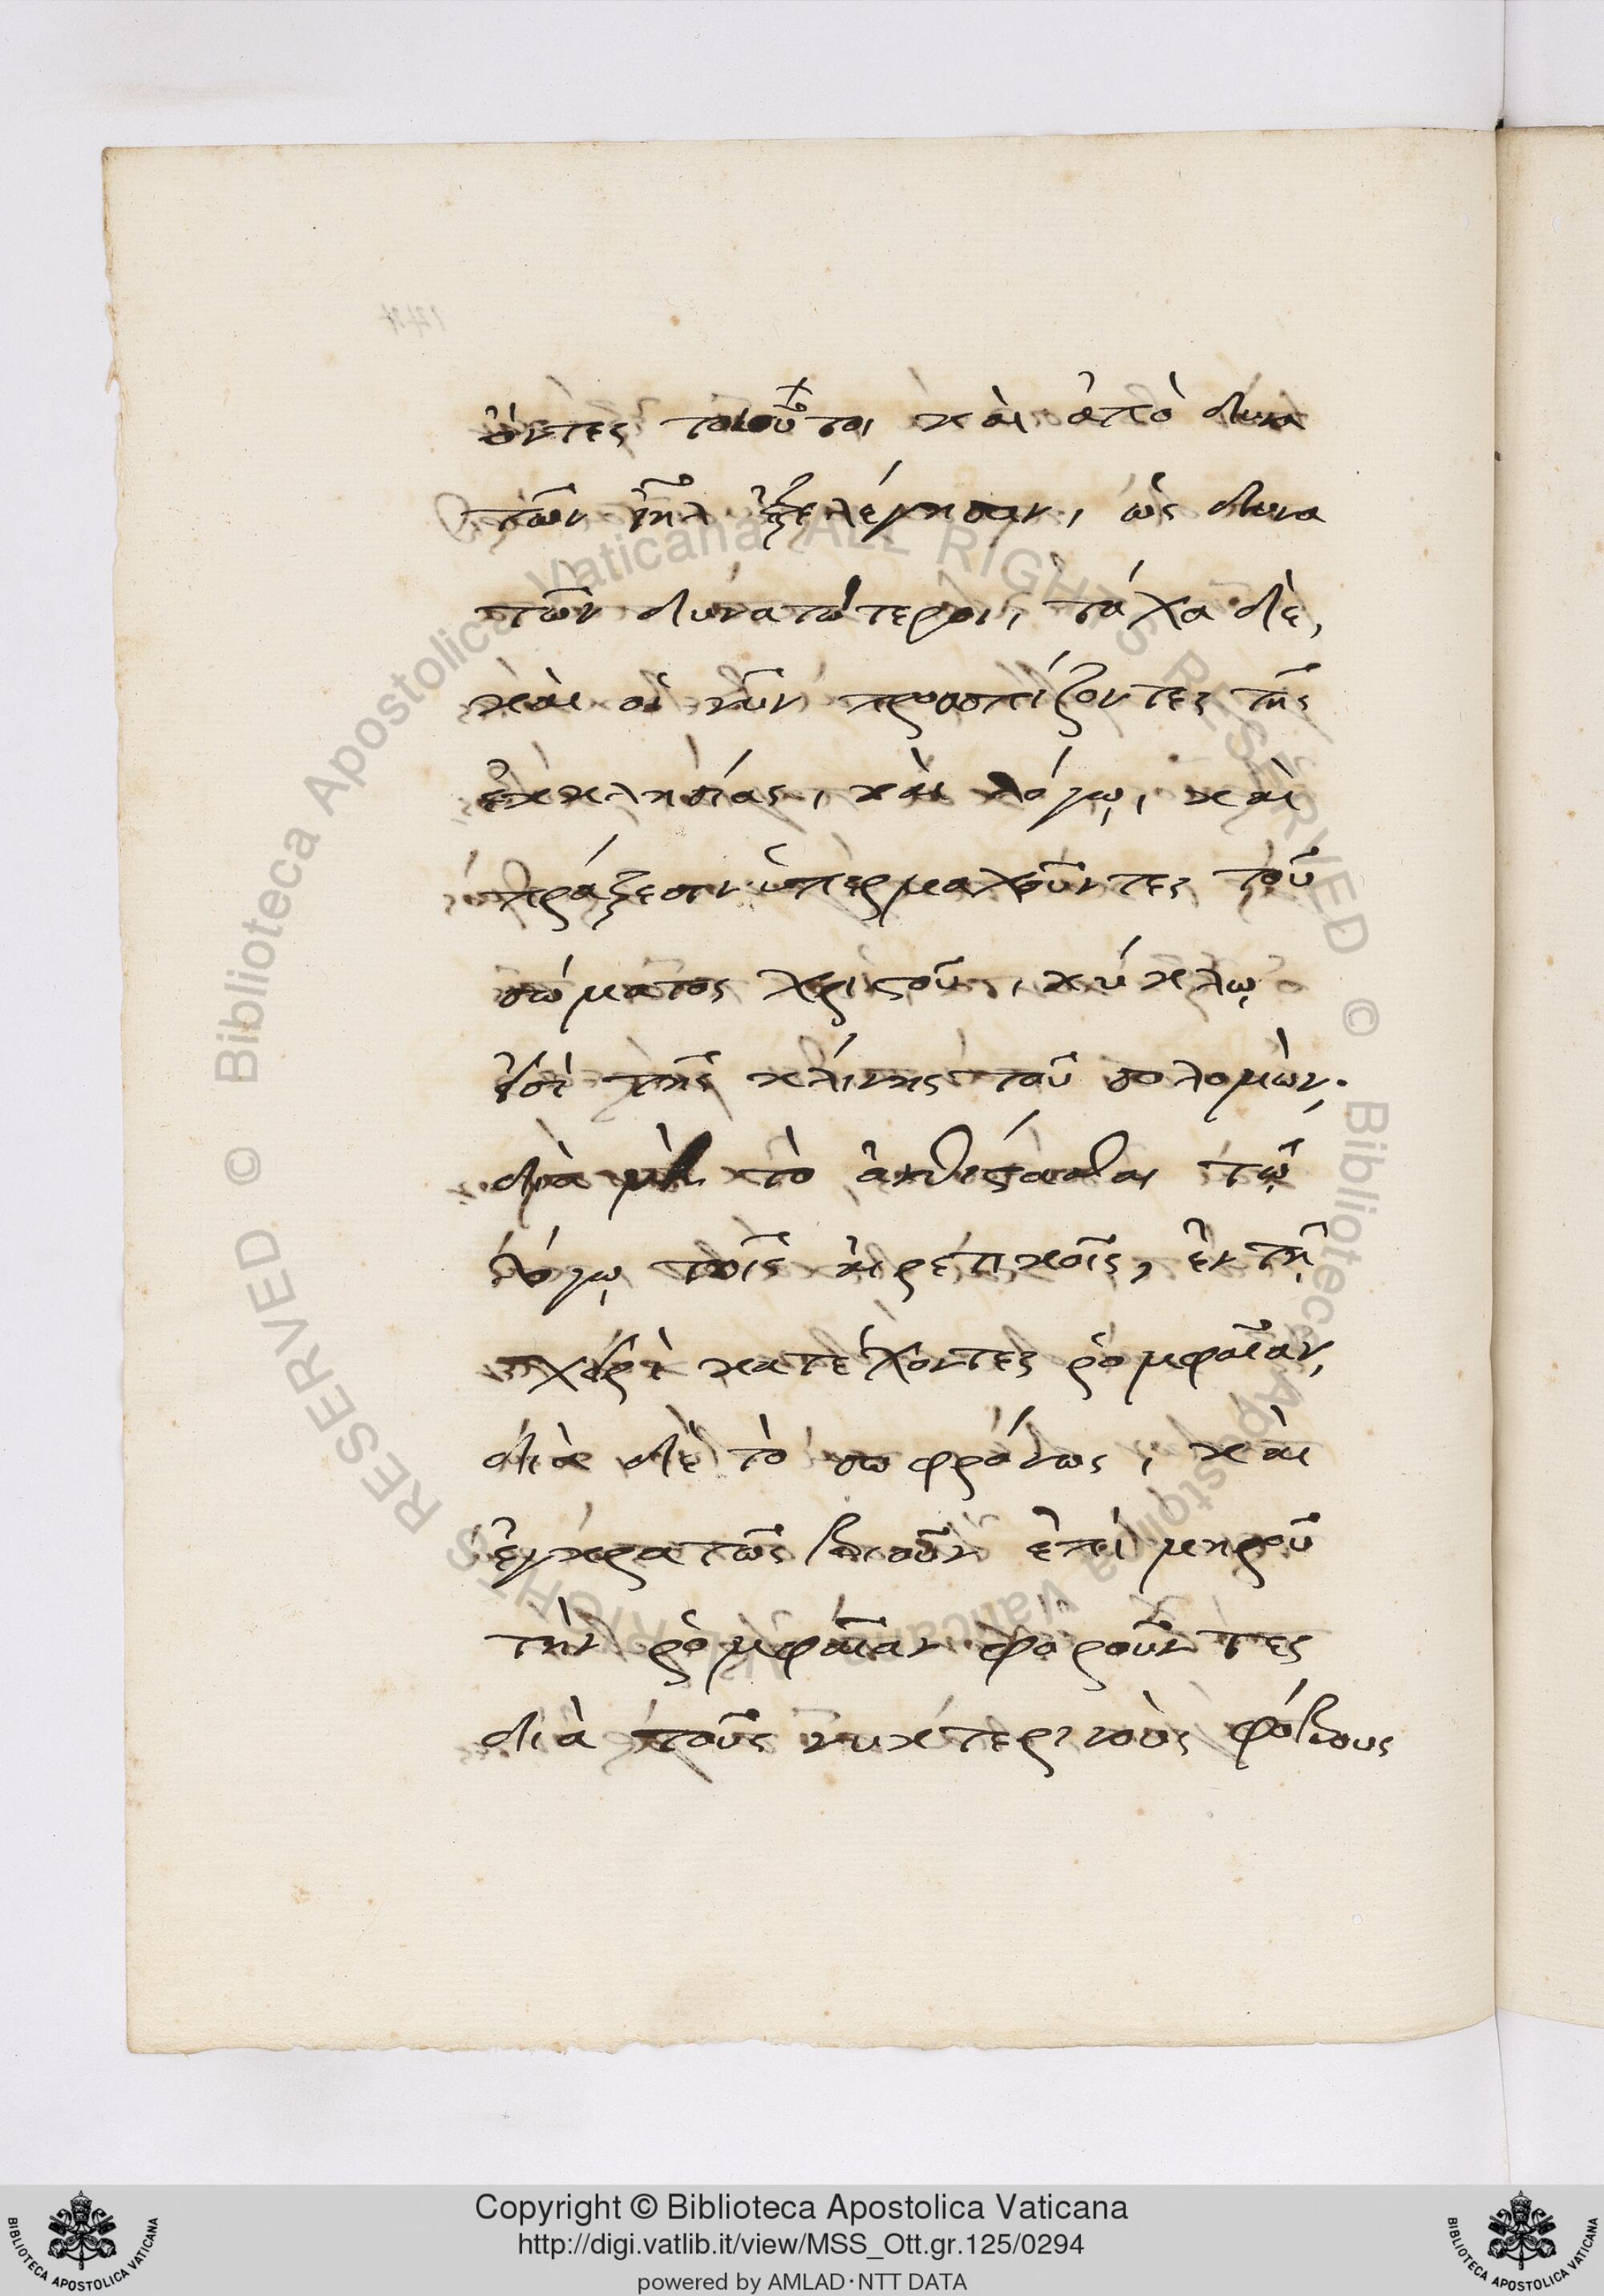 ὄντες τοιοῦτοι καὶ ἀπὸ δυνα
τῶν ἰηλ ἐξελέγησαν, ὡς δυνα
τῶν δυνατώτεροι, τάχα δὲ,
καὶ οἱ νῦν προασπίζοντες τῆς
ἐκκλησίας, καὶ λόγῳ, καὶ
πράξεσιν ὑπερμαχοῦντες τοῦ
σώματος χριστοῦ, κύκλῳ
εἰσὶ τῆς κλίνης τοῦ σολομών.
διὰ μὲν τὸ ἀνθίστασθαι τῷ
λόγῳ τοῖς αἱρετικοῖς, ἐν τῇ
χειρὶ κατέχοντες ῥομφαῖαν,
διὰ δὲ τὸ σωφρόνως, καὶ
ἐγκρατῶς βιοῦν ἐπὶ μηροῦ
τὴν ῥομφαῖαν φοροῦντες
διὰ τοὺς νυκτερινοὺς φόβους
Copyright © Biblioteca Apostolica Vaticana
http://digi.vatlib.it/view/MSS_Ott.gr.125/0294
powered by AMLAD·NTT DATA
BIBLIOTECA APOSTOLICA VATICANA
BIBLIOTECA APOSTOLICA VATICANA
© Biblioteca Apostolica Vaticana ALL RIGHTS RESERVED
© Biblioteca Apostolica Vaticana ALL RIGHTS RESERVED